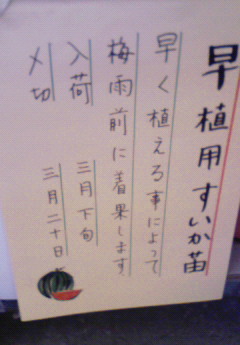 早植用すいか苗
早く植える事によって
梅雨前に着果します
入荷 三月下旬
〆切 三月二十日